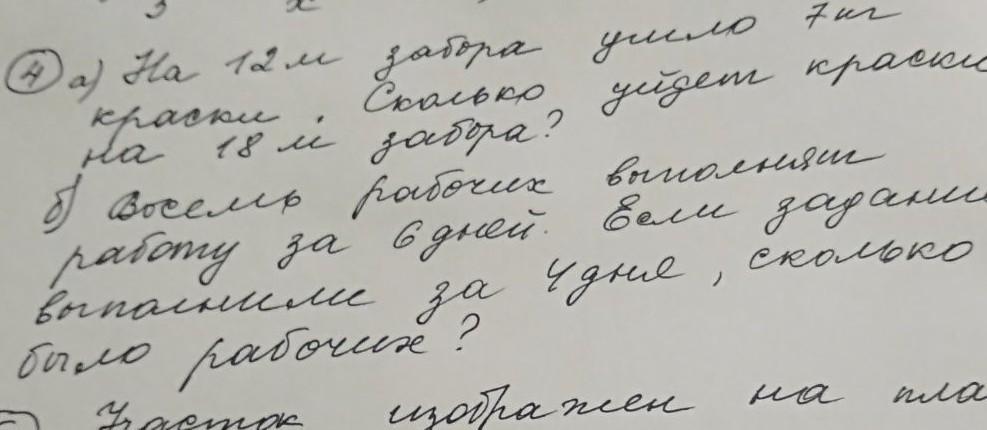 3 x
④ а) На 12 м забора ушло 7 кг
краски. Сколько уйдет краски
на 18 м забора?
б) Восемь рабочих выполнят
работу за 6 дней. Если задани
выполнили за 4 дня, сколько
было рабочих?
Участок изображен на пла